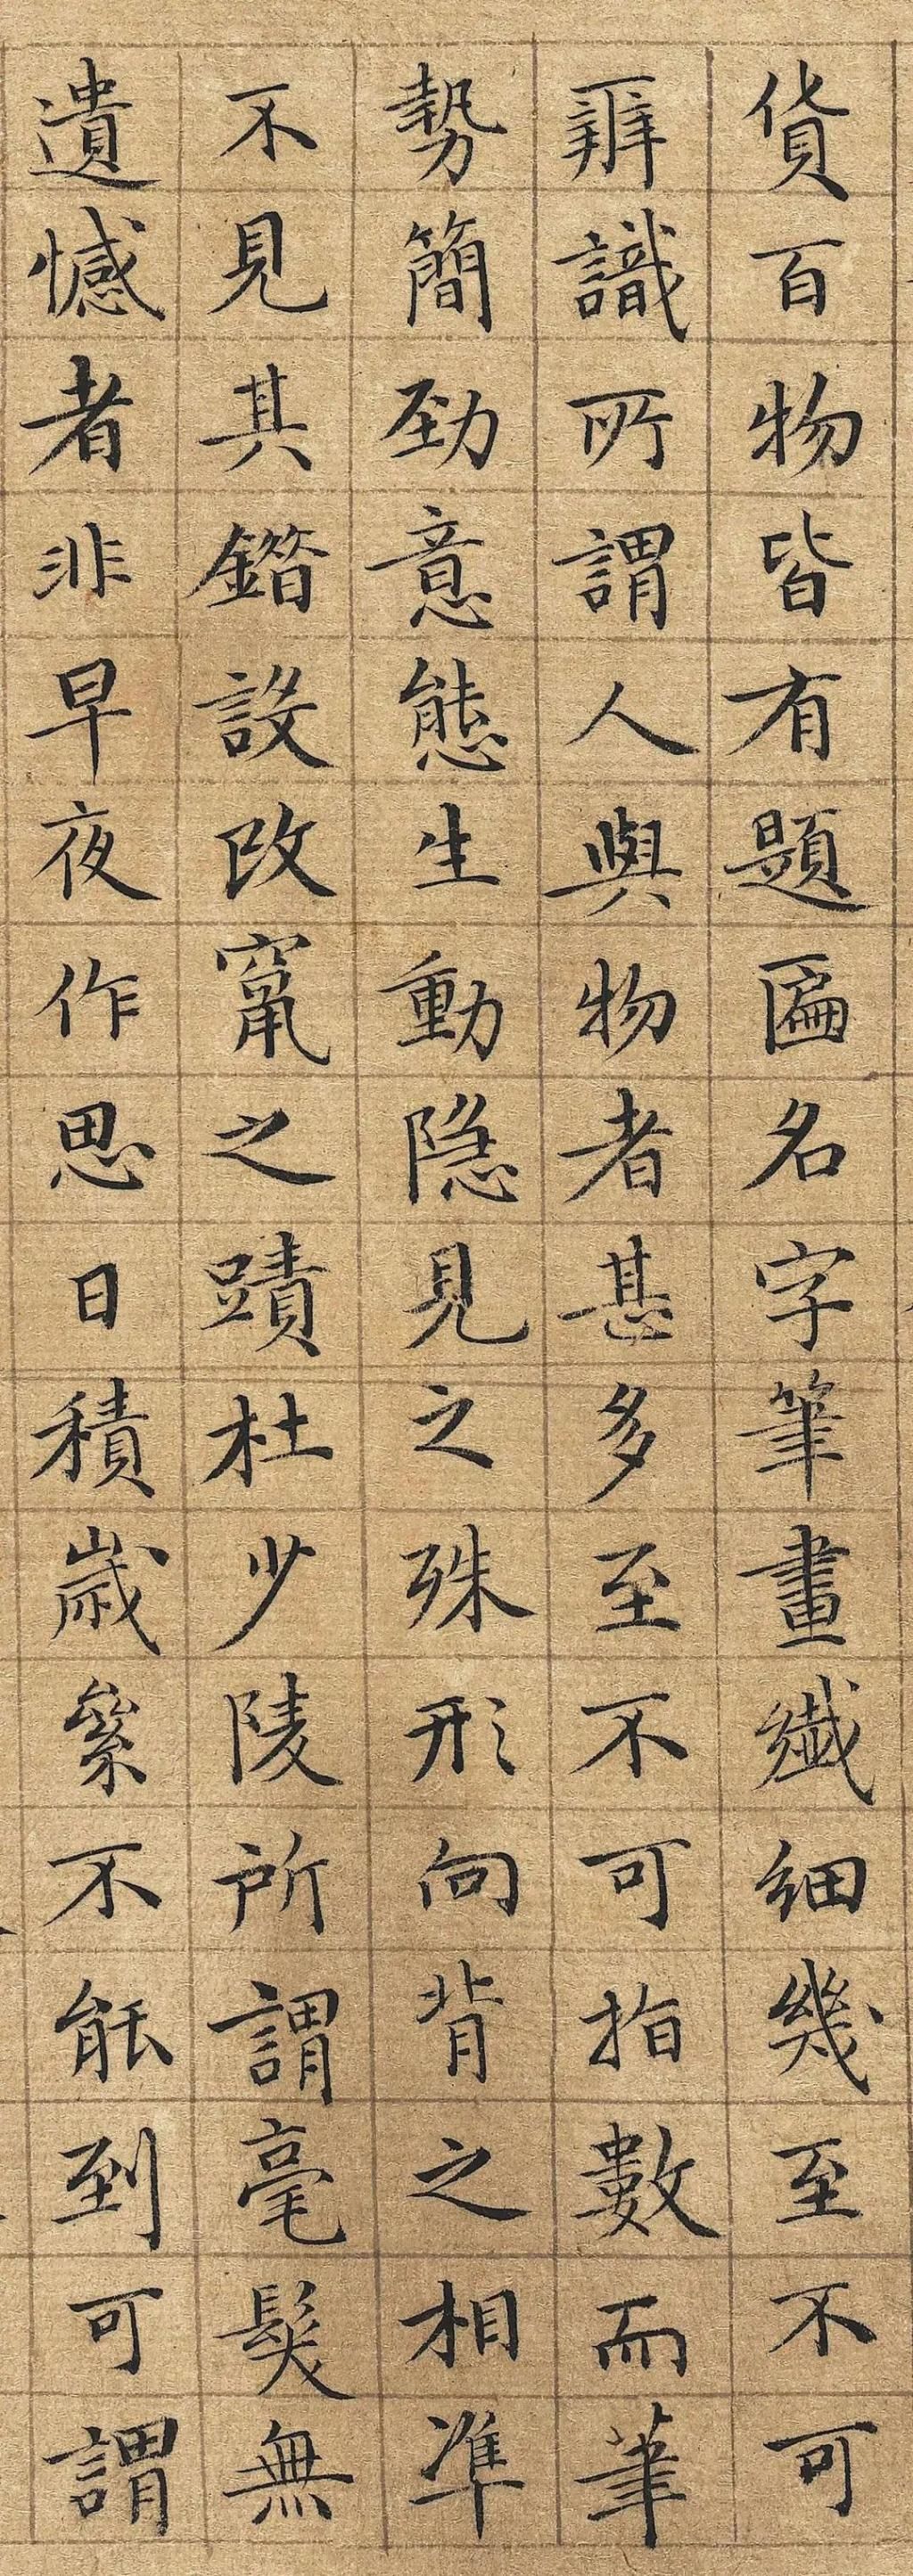 貨百物皆有題匾名字筆畫纖細幾至不可
辨識所謂人與物者甚多至不可指數而筆
勢簡勁意態生動隐見之殊形向背之相凖
不見其鐕設改竄之蹟杜少陵所謂毫髮無
遺憾者非早夜作思日積歲絫不能到可謂